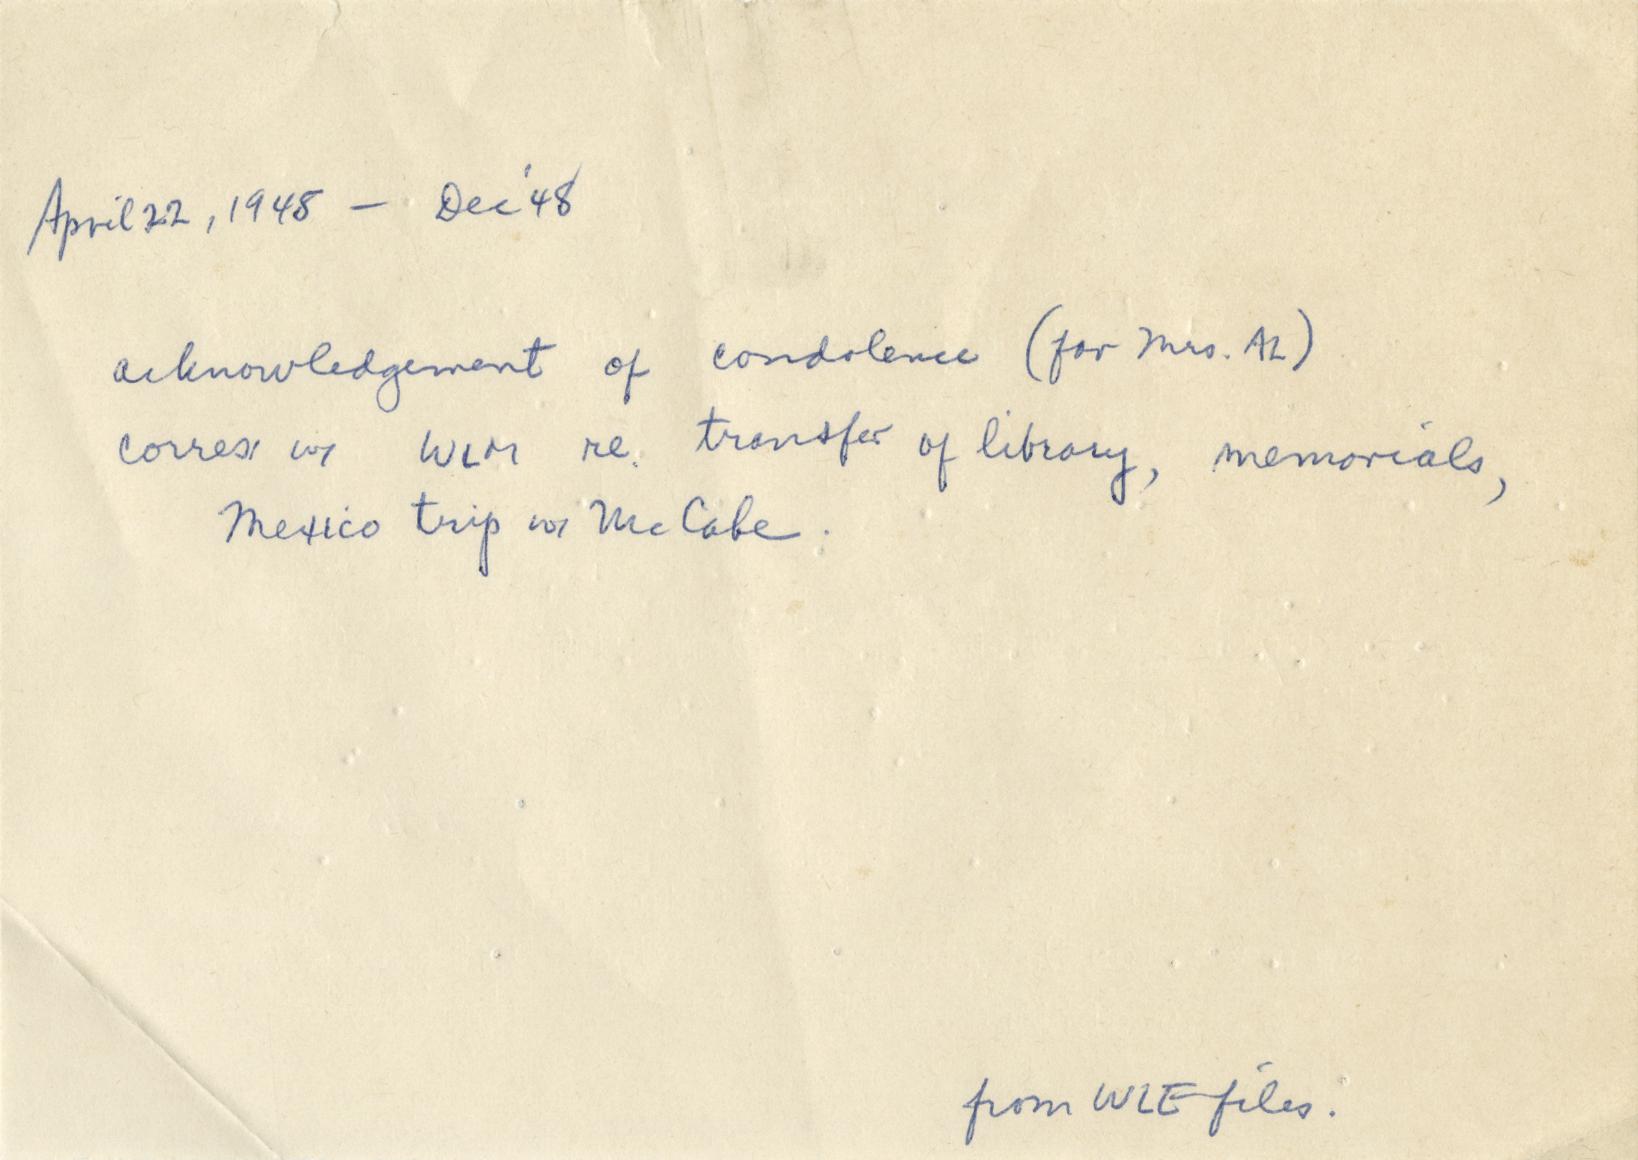 April 22, 1948 — Dec '48
acknowledgement of condolence (for Mrs. AL)
corres w/ WLM re. transfer of library, memorials,
Mexico trip w/ McCabe.
from WLE files.